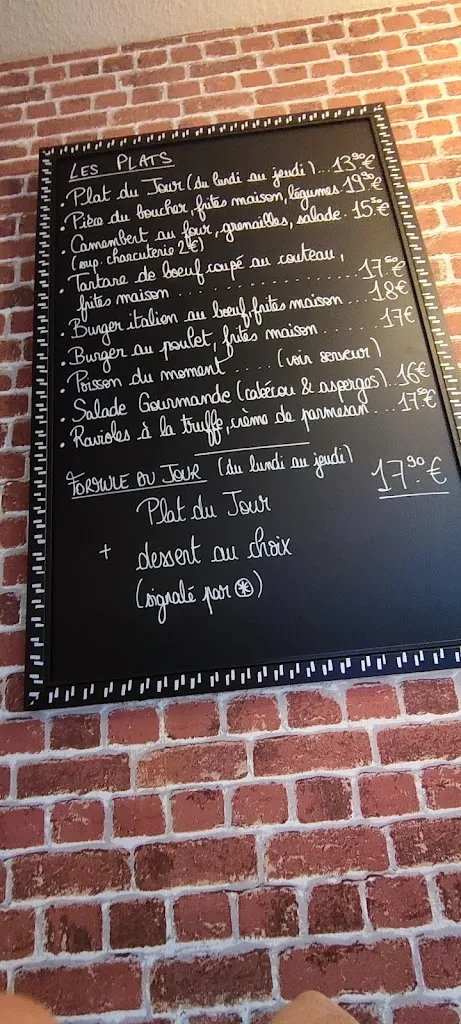 LES PLATS
. Plat du Jour (du lundi au jeudi)... 13.90€
. Pièce du boucher, frites maison, légumes 19.90€
. Camembert au four, grenailles, salade. 15.50€
(sup. charcuterie 2€)
. Tartare de boeuf coupé au couteau,
frites maison .......... 17.50€
. Burger italien au boeuf, frites maison ..... 18€
. Burger au poulet, frites maison ........ 17€
. Poisson du moment ..... (voir serveur)
. Salade Gourmande (cabécou & asperges). 16€
. Ravioles à la truffe, crème de parmesan ... 17.50€
FORMULE DU JOUR (du lundi au jeudi)
17.90€
Plat du Jour
+ dessert au choix
(signalé par ⊛)